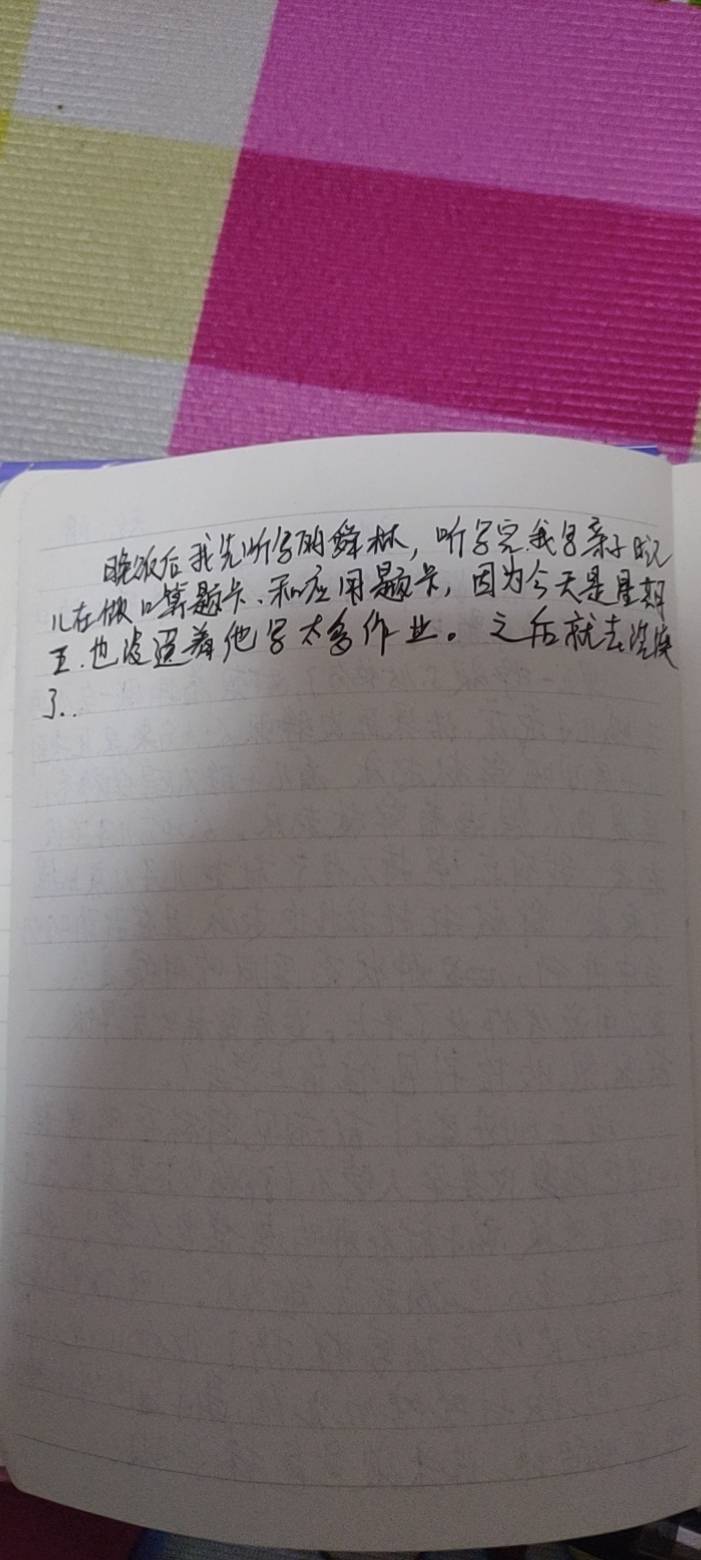 晚饭后我先听写的舞林，听写完我写亲子日记
儿在做口算题卡、和应用题卡，因为今天是星期
五.也没逼着他写太多作业。之后就去洗澡
了..